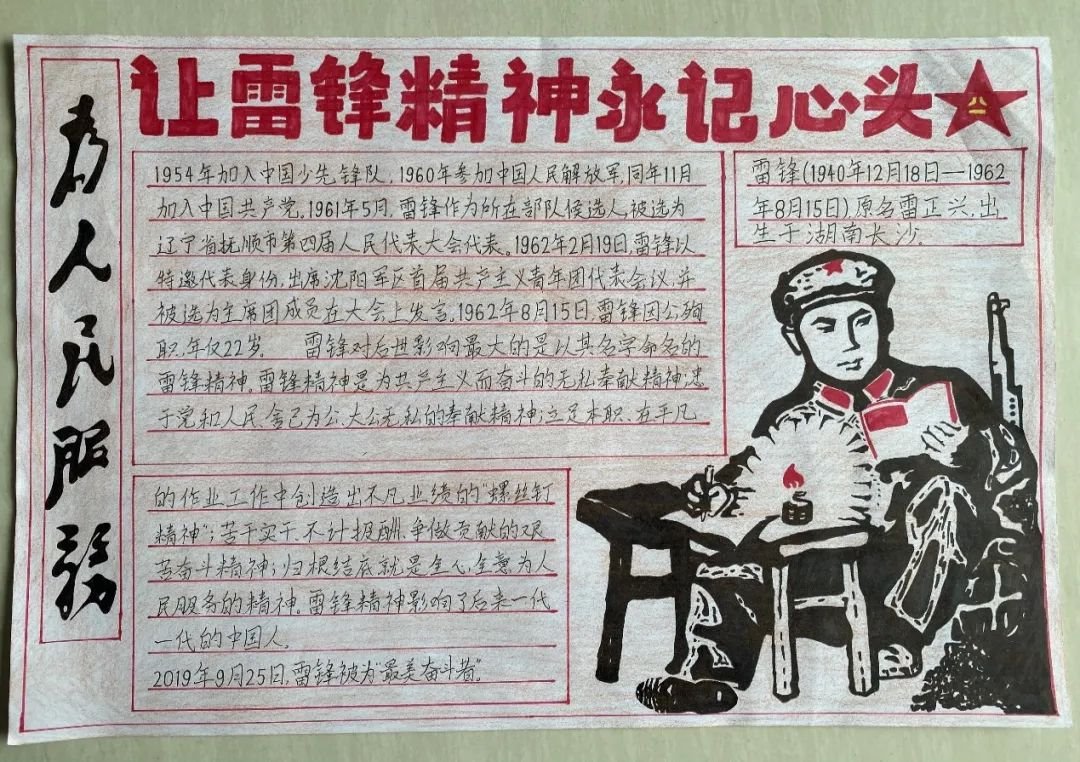 让雷锋精神永记心头
为人民服务
雷锋(1940年12月18日—1962
年8月15日),原名雷正兴,出
生于湖南长沙.
1954年加入中国少先锋队,1960年参加中国人民解放军,同年11月
加入中国共产党.1961年5月,雷锋作为所在部队候选人,被选为
辽宁省抚顺市第四届人民代表大会代表。1962年2月19日,雷锋以
特邀代表身份,出席沈阳军区首届共产主义青年团代表会议,并
被选为主席团成员在大会上发言。1962年8月15日,雷锋因公殉
职,年仅22岁. 雷锋对后世影响最大的是以其名字命名的
雷锋精神.雷锋精神是为共产主义而奋斗的无私奉献精神;忠
于党和人民、舍己为公、大公无私的奉献精神;立足本职、在平凡
的作业工作中创造出不凡业绩的“螺丝钉
精神”;苦干实干、不计报酬、争做贡献的艰
苦奋斗精神;归根结底就是全心全意为人
民服务的精神.雷锋精神影响了后来一代
一代的中国人.
2019年9月25日,雷锋被为“最美奋斗者”.